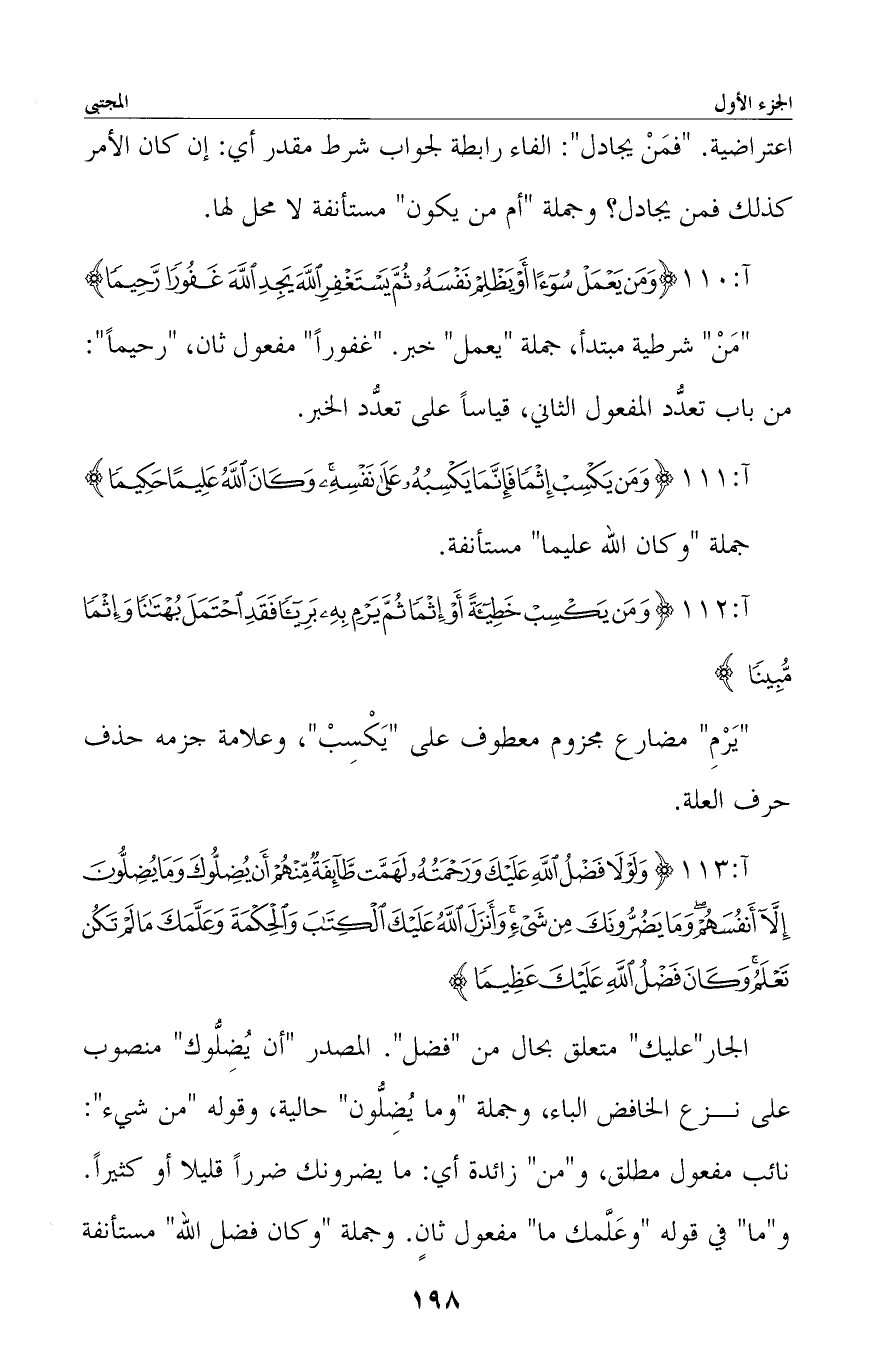 الجزء الأول
المجتبى
اعتراضية. "فمَنْ يجادل": الفاء رابطة لجواب شرط مقدر أي: إن كان الأمر
كذلك فمن يجادل؟ وجملة "أم من يكون" مستأنفة لا محل لها.
آ:١١٠ ﴿وَمَن يَعۡمَلۡ سُوٓءًا أَوۡ يَظۡلِمۡ نَفۡسَهُۥ ثُمَّ يَسۡتَغۡفِرِ ٱللَّهَ يَجِدِ ٱللَّهَ غَفُورٗا رَّحِيمٗا﴾
"مَنْ" شرطية مبتدأ، جملة "يعمل" خبر. "غفوراً" مفعول ثان، "رحيماً":
من باب تعدُّد المفعول الثاني، قياساً على تعدُّد الخبر.
آ:١١١ ﴿وَمَن يَكۡسِبۡ إِثۡمٗا فَإِنَّمَا يَكۡسِبُهُۥ عَلَىٰ نَفۡسِهِۦۚ وَكَانَ ٱللَّهُ عَلِيمًا حَكِيمٗا﴾
جملة "وكان الله عليما" مستأنفة.
آ:١١٢ ﴿وَمَن يَكۡسِبۡ خَطِيٓـَٔةً أَوۡ إِثۡمٗا ثُمَّ يَرۡمِ بِهِۦ بَرِيٓـٔٗا فَقَدِ ٱحۡتَمَلَ بُهۡتَٰنٗا وَإِثۡمٗا
مُّبِينٗا﴾
"يَرْمِ" مضارع مجزوم معطوف على "يَكْسِبْ"، وعلامة جزمه حذف
حرف العلة.
آ:١١٣ ﴿وَلَوۡلَا فَضۡلُ ٱللَّهِ عَلَيۡكَ وَرَحۡمَتُهُۥ لَهَمَّت طَّآئِفَةٞ مِّنۡهُمۡ أَن يُضِلُّوكَ وَمَا يُضِلُّونَ
إِلَّآ أَنفُسَهُمۡۖ وَمَا يَضُرُّونَكَ مِن شَيۡءٖۚ وَأَنزَلَ ٱللَّهُ عَلَيۡكَ ٱلۡكِتَٰبَ وَٱلۡحِكۡمَةَ وَعَلَّمَكَ مَا لَمۡ تَكُن
تَعۡلَمُۚ وَكَانَ فَضۡلُ ٱللَّهِ عَلَيۡكَ عَظِيمٗا﴾
الجار"عليك" متعلق بحال من "فضل". المصدر "أن يُضِلُّوك" منصوب
على نـــزع الخافض الباء، وجملة "وما يُضِلُّون" حالية، وقوله "من شيء":
نائب مفعول مطلق، و"من" زائدة أي: ما يضرونك ضرراً قليلا أو كثيراً.
و"ما" في قوله "وعَلَّمك ما" مفعول ثانٍ. وجملة "وكان فضل الله" مستأنفة
١٩٨